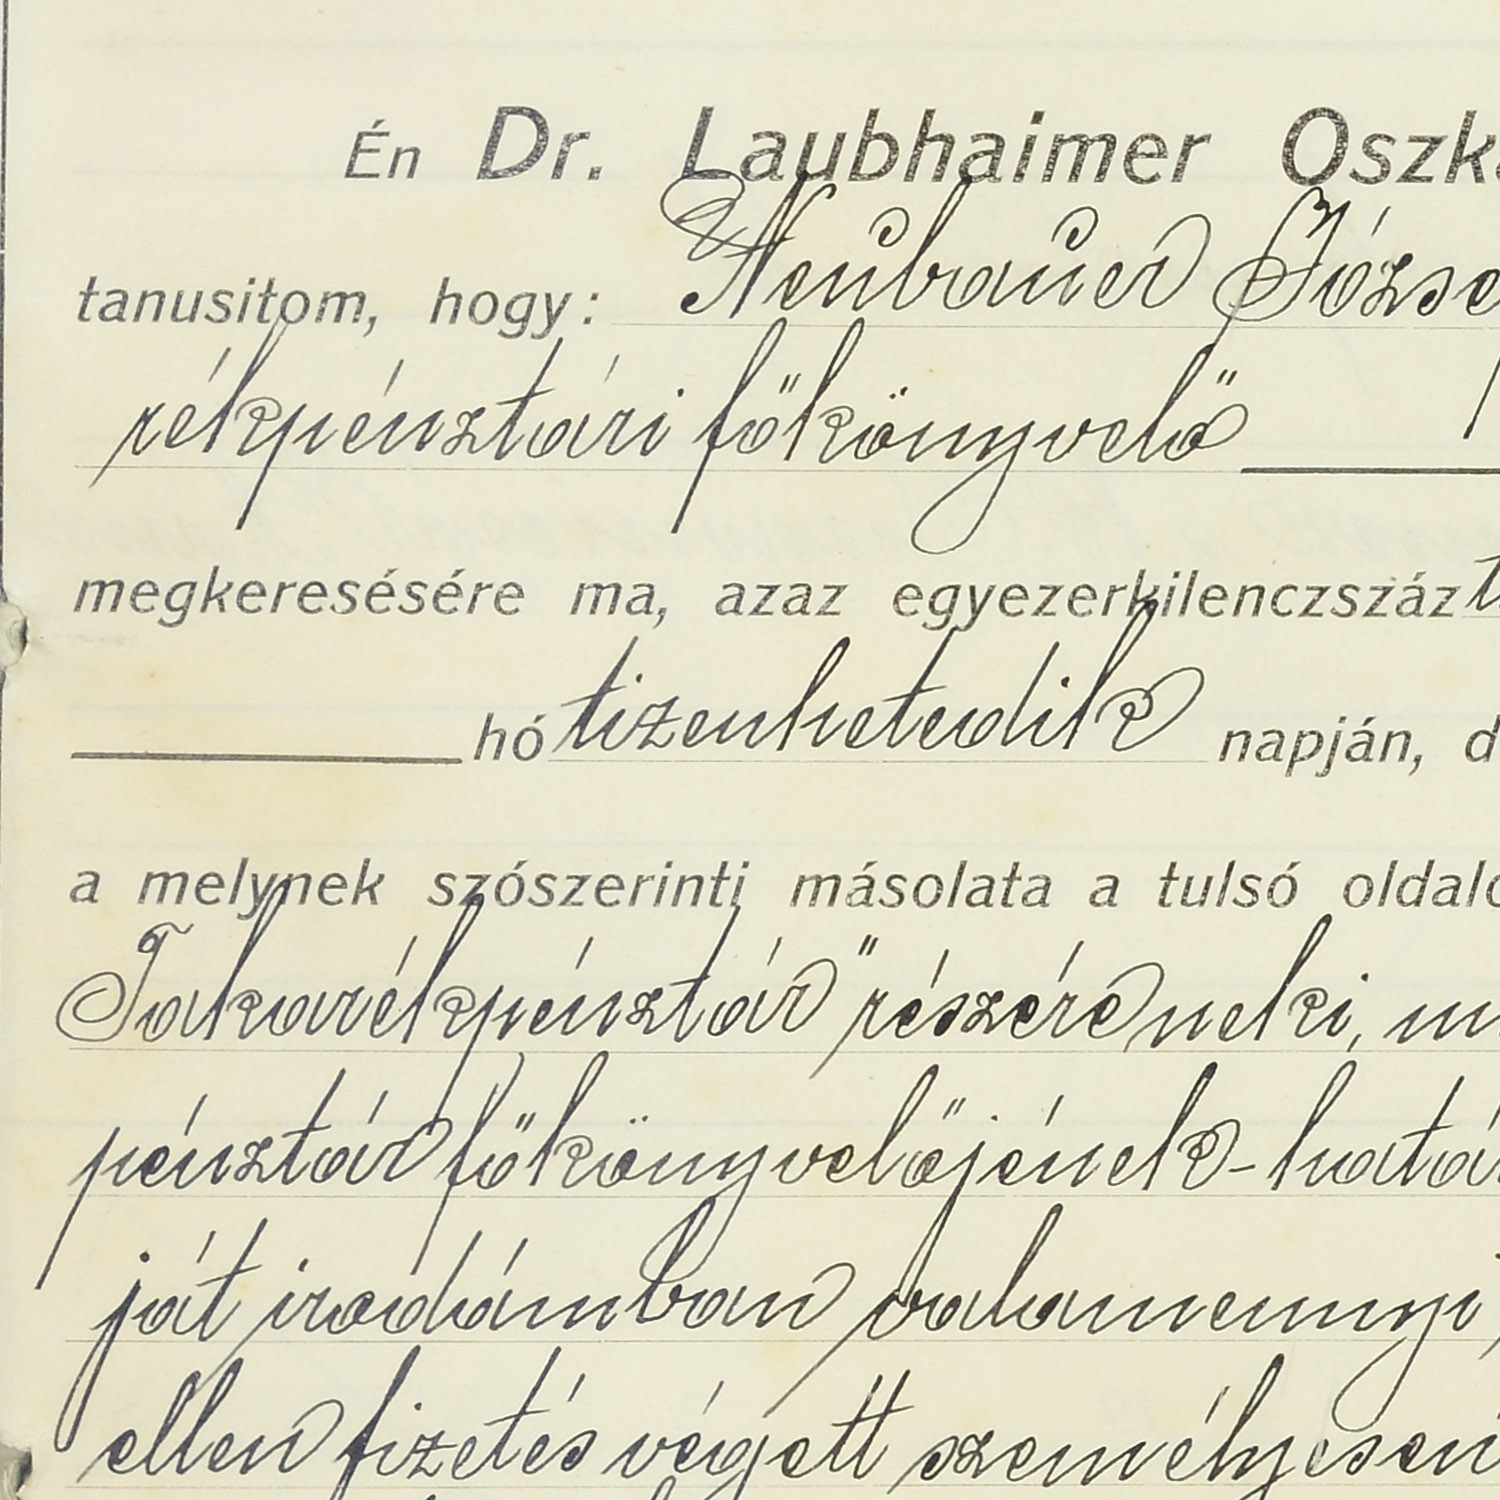 Én Dr. Laubhaimer Oszká
tanusitom, hogy: Neubauer Józse
rékpénztári főkönyvelő
megkeresésére ma, azaz egyezerkilenczszáz t
hó tizenhetedik napján, d
a melynek szószerinti másolata a tulsó oldalo
Takarékpénztár" részére neki, m
pénztár főkönyvelőjének - hatá
ját irodámban valamennyi
ellen fizetés végett személyesen